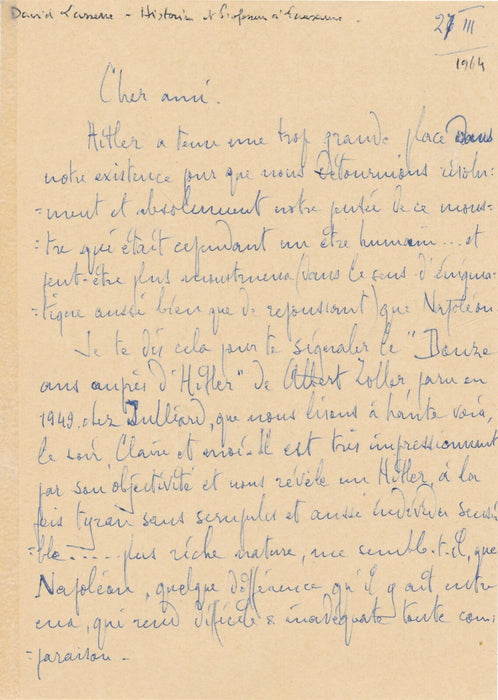 David Lasserre - Historien et Professeur à Lausanne.
27 III
1964
Cher ami.
Hitler a tenu une trop grande place dans
notre existence pour que nous détournions résolu-
=ment et absolument notre pensée de ce mons-
=tre qui était cependant un être humain... et
peut-être plus monstrueux (dans le sens d'énigma-
=tique aussi bien que de repoussant) que Napoléon.
Je te dis cela pour te signaler le "Douze
ans auprès d'Hitler" de Albert Zoller paru en
1949 chez Julliard, que nous lisons à haute voix,
le soir Claire et moi. Il est très impressionnant
par son objectivité et nous révèle un Hitler, à la
fois tyran sans scrupules et aussi individu sensi-
=ble..... plus riche nature, me semble-t-il, que
Napoléon, quelque différence qu'il y ait entre
eux, qui rend difficile & inadéquate toute com-
=paraison -